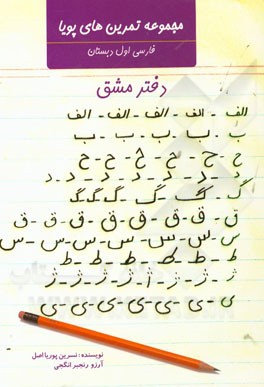 مجموعه تمرین های پویا
فارسی اول دبستان
دفتر مشق
الف - الف - الف - الف - الف
ب - ب - ب - ب - ب
ح - ح - ح - ح - ح
د - د - د - د - د - د - د
گ - گ - گ - گ گ گ
ق - ق - ق - ق - ق - ق - ق
س - س - س - س - س - س
ط - ط - ط - ط - ط - ط
ژ - ژ - ژ - ژ - ژ - ژ - ژ
ی - ی - ی - ی - ی - ی
نویسنده: نسرین پوریا اصل
آرزو رنجبر انگجی